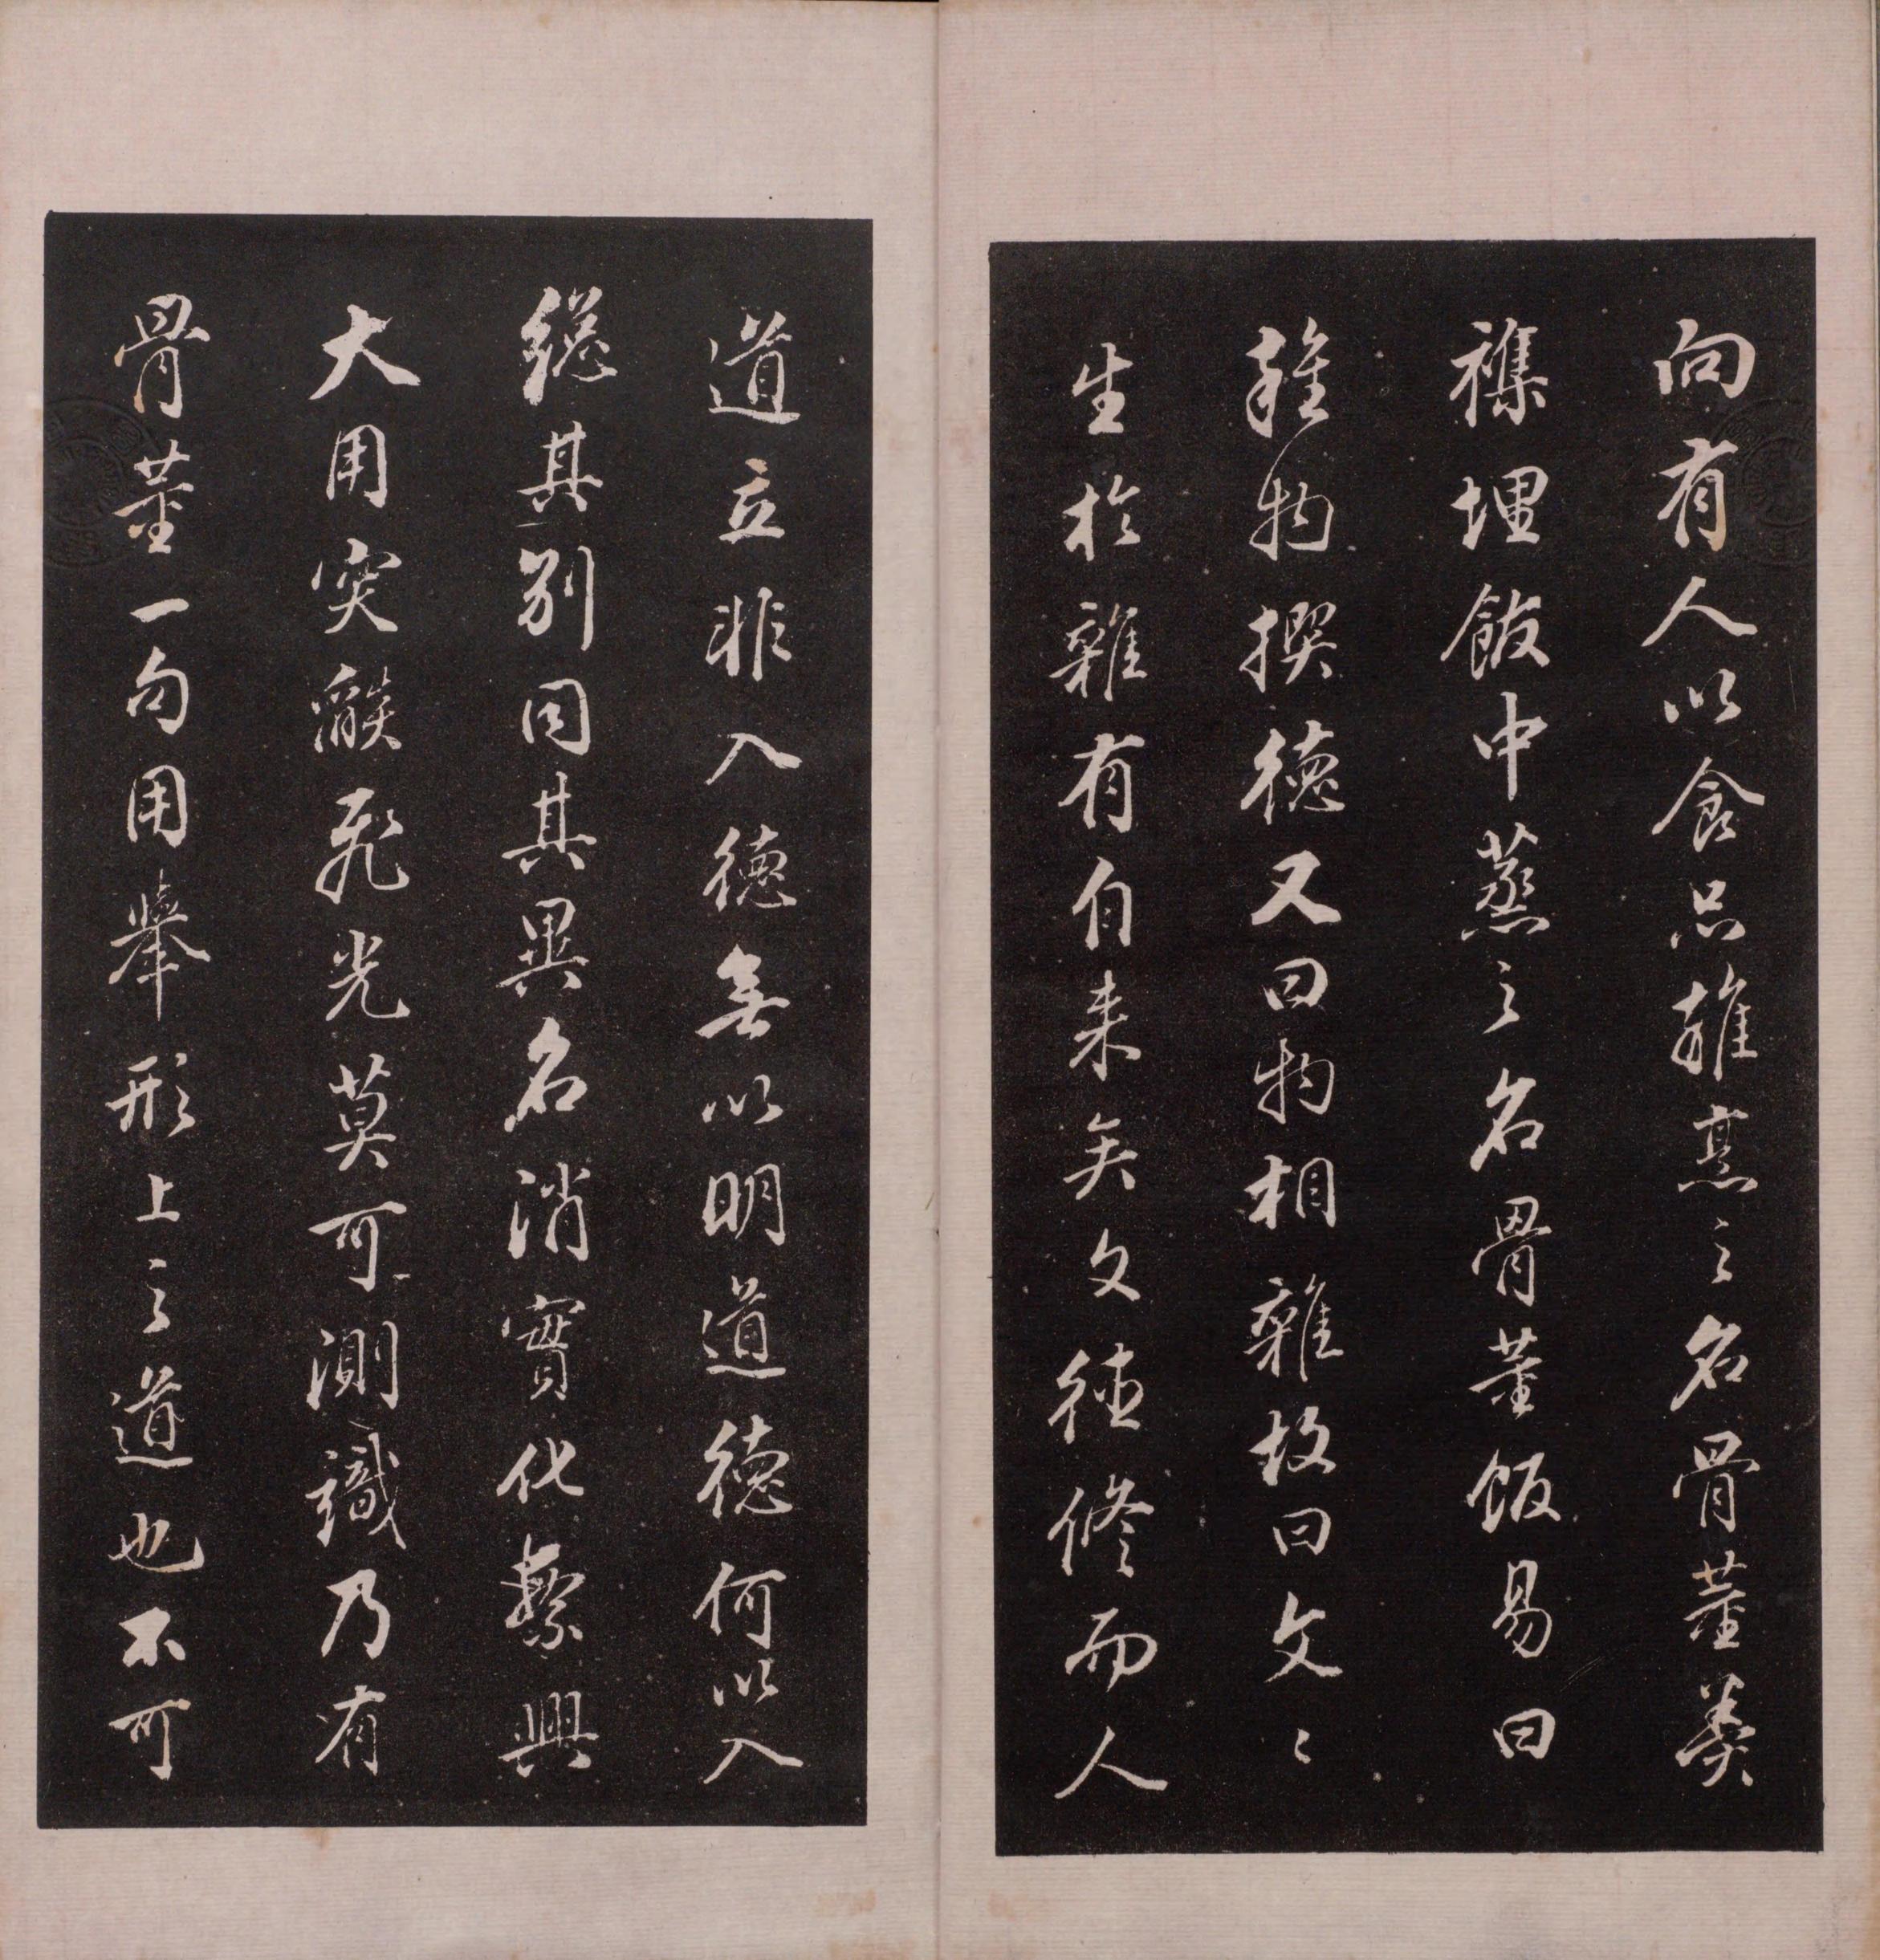 向有人以食品雜烹之名骨董羹
襍埋飯中蒸之名骨董飯易曰
雜物撰德又曰物相雜故曰文文
生於雜有自来矣文德修而人
道立非入德無以明道德何以入
總其別同其異名消實化繫興
大用突發飛光莫可測識乃有
骨董一句用舉形上之道也不可